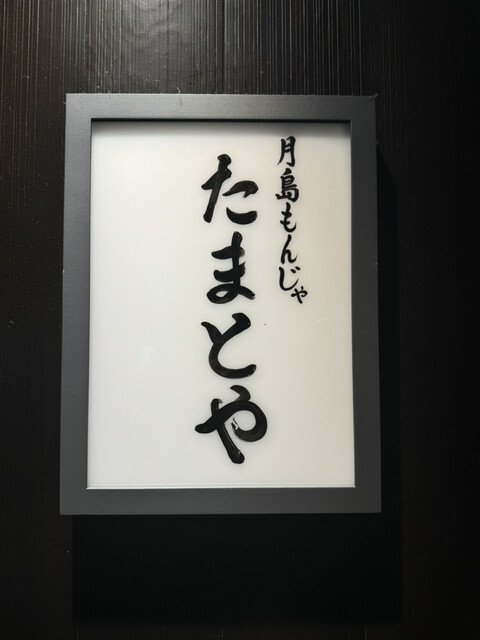 月島もんじゃ
たまとや